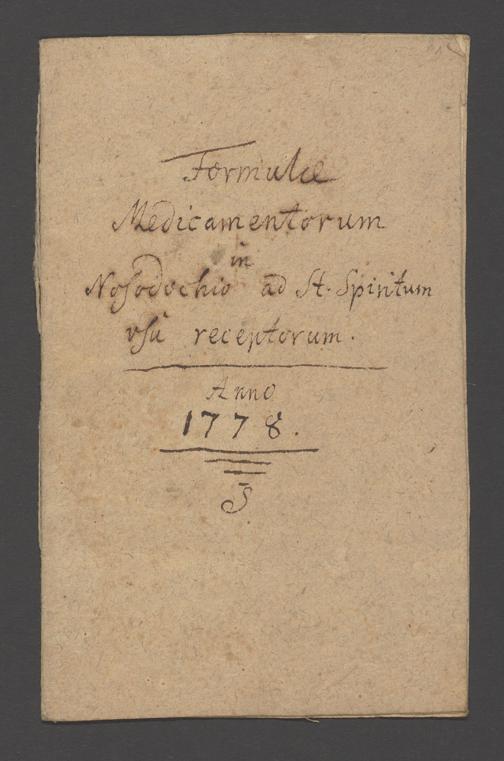 Formulæ
Medicamentorum
in
Nosodochio ad St. Spiritum
usû receptorum.
Anno
1778.